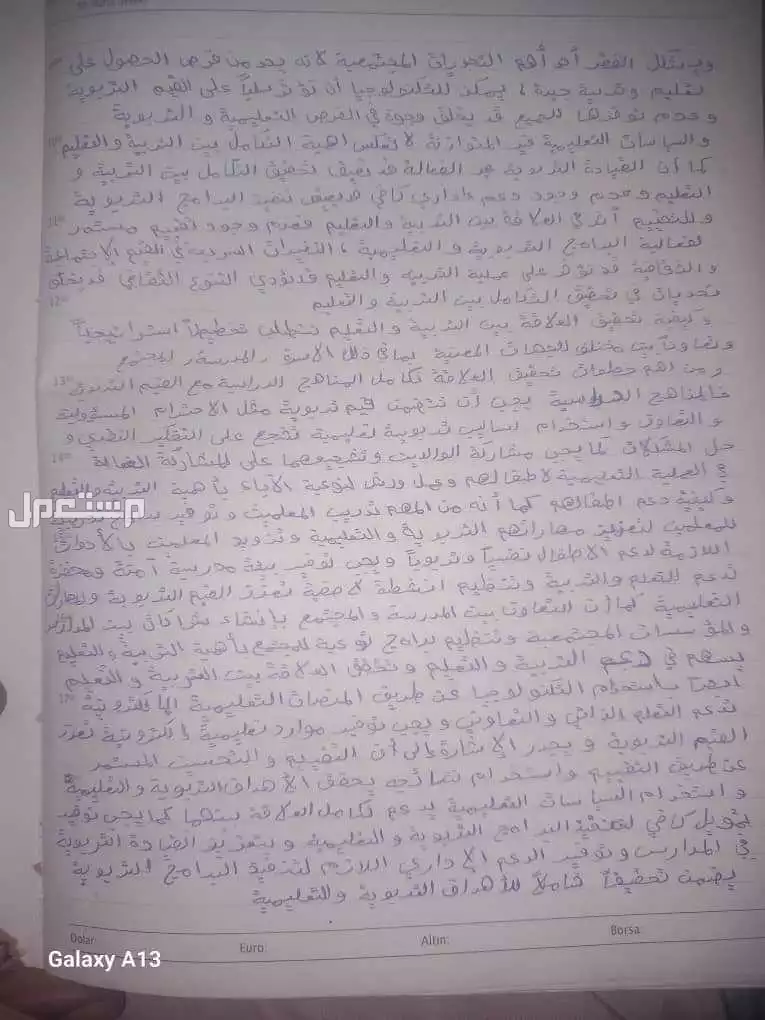 ويشكل الفقر أحد أهم التحديات المجتمعية لانه يحد من فرص الحصول على
تعليم وتربية جيدة ، يمكن للتكنولوجيا أن تؤثر سلباً على القيم التربوية
وعدم توفرها للجميع قد يخلق فجوة في الفرص التعليمية و التربوية
والسياسات التعليمية غير المتوازنة لا تعكس اهمية التكامل بين التربية والتعليم
كما أن القيادة التربوية غير الفعالة قد تعيق تحقيق التكامل بين التربية و
التعليم وعدم وجود دعم إداري كافي قد يعيق تنفيذ البرامج التربوية
وللتقييم أثر في العلاقة بين التربية والتعليم فعدم وجود تقييم مستمر
لفعالية البرامج التربوية و التعليمية ، التغيرات السريعة في القيم الاجتماعية
و الثقافية قد تؤثر على عملية التربية والتعليم قد يؤدي التنوع الثقافي قد يخلق
تحديات في تحقيق التكامل بين التربية والتعليم
وكيفية تحقيق العلاقة بين التربية و التعليم تتطلب تخطيطاً استراتيجياً
وتعاوناً بين مختلف الجهات المعنية بما في ذلك الاسرة والمدرسة والمجتمع
ومن اهم خطوات تحقيق العلاقة تكامل المناهج الدراسية مع القيم التربوية
فالمناهج الدراسية يجب أن تتضمن قيم تربوية مثل الاحترام المسؤولية
و التعاون و استخدام اساليب تربوية تعليمية تشجع على التفكير النقدي و
حل المشكلات كما يجب مشاركة الوالدين وتشجيعهما على المشاركة الفعالة
في العملية التعليمية لاطفالهم وعمل ورش لتوعية الآباء بأهمية التربية والتعليم
وكيفية دعم اطفالهم كما أنه من المهم تدريب المعلمين و توفير
للمعلمين لتعزيز مهاراتهم التربوية والتعليمية وتزويد المعلمين بالأدوات
اللازمة لدعم الاطفال نفسياً وتربوياً ويجب توفير بيئة مدرسية آمنة ومحفزة
تدعم التعلم والتربية وتنظيم انشطة لا صفية تعزز القيم التربوية
التعليمية كما أن التعاون بين المدرسة والمجتمع بإنشاء شراكات بين المدارس
والمؤسسات المجتمعية وتنظيم برامج توعية للمجتمع بأهمية التربية والتعليم
يسهم في دعم التربية و التعليم و تحقق العلاقة بين التربية و التعليم
أيضاً باستخدام التكنولوجيا عن طريق المنصات التعليمية الإلكترونية
تدعم التعلم الذاتي والتعاوني ويجب توفير موارد تعليمية إلكترونية تعزز
القيم التربوية و يجدر الإشارة إلى أن التقييم و التحسين المستمر
عن طريق التقييم واستخدام نتائجه يحقق الأهداف التربوية والتعليمية
و استخدام السياسات التعليمية يدعم تكامل العلاقة بينهما كما يجب توفير
تمويل كافي لتنفيذ البرامج التربوية و التعليمية و بتعزيز القيادة التربوية
في المدارس وتوفير الدعم الإداري اللازم لتنفيذ البرامج التربوية
يضمن تحقيقاً شاملاً للأهداف التربوية والتعليمية
مستعمل
Dolar: Euro: Altın: Borsa:
Galaxy A13